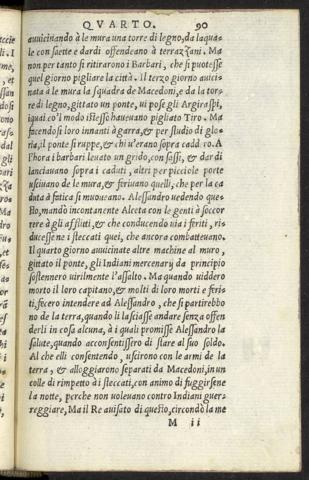 QVARTO. 90
auuicinando à le mura una torre di legno, da laqua-
le con saette e dardi offendeano à terrazzani. Ma
non per tanto si ritirarono i Barbari, che si puotesse
quel giorno pigliare la città. Il terzo giorno auici-
nata à le mura la squadra de Macedoni, e da la tor-
re di legno, gittato un ponte, ui pose gli Argiraspi,
iquai co'l modo istesso haueuano pigliato Tiro. Ma
facendosi loro innanti à garra, & per studio di glo-
ria, il ponte si ruppe, & chi u'erano sopra caddero. A
l'hora i barbari leuato un grido, con sassi, & dardi
lanciauano sopra i caduti, altri per picciole porte
usciuano de le mura, & feriuano quelli, che per la ca
duta à fatica si moueano. Alessandro uedendo que-
sto, mandò incontanente Alceta con le genti à soccor
rere à gli afflitti, & che conducendo uia i feriti, ri-
ducesse ne i steccati quei, che ancora combatteuano.
Il quarto giorno auuicinate altre machine al muro,
gittato il ponte, gli Indiani mercenarij da principio
sostennero uirilmente l'assalto. Ma quando uiddero
morto il loro capitano, & molti di loro morti e feri-
ti, fecero intendere ad Alessandro, che si partirebbo
no de la terra, quando li lasciasse andare senza offen
derli in cosa alcuna, à i quali promisse Alessandro la
salute, quando acconsentissero di stare al suo soldo.
Al che elli consentendo, uscirono con le armi de la
terra, & alloggiarono separati da Macedoni, in un
colle di rimpetto à i steccati, con animo di fuggirsene
la notte, perche non uoleuano contro Indiani guer-
reggiare, Ma il Re auisato di questo, circondò la me
M ii